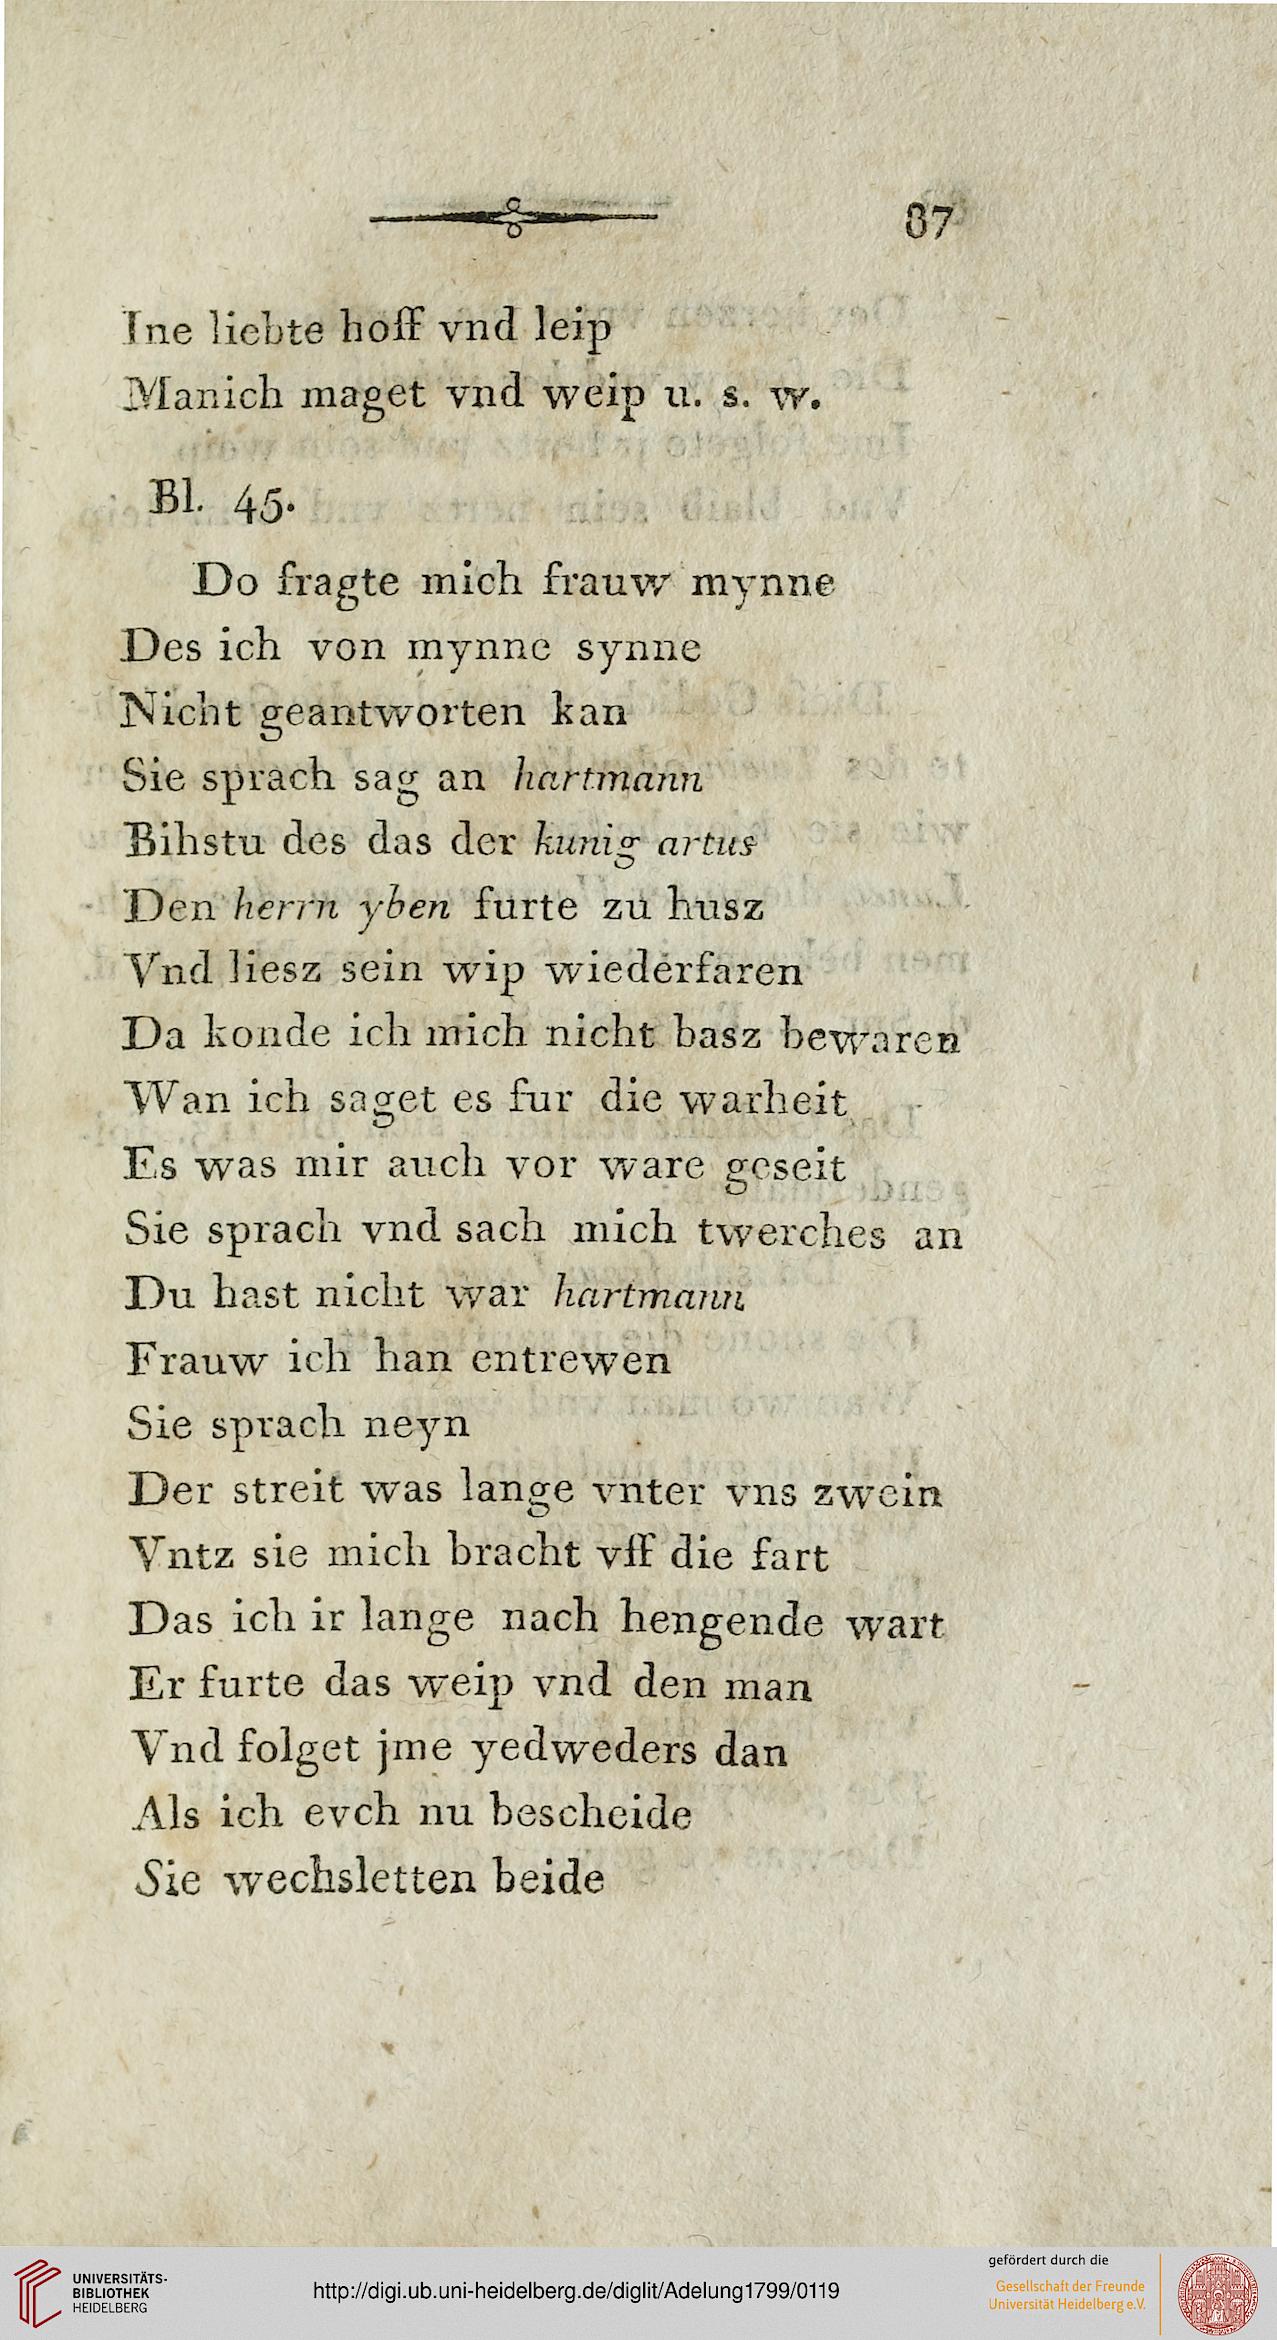 87
Ine liebte hoff vnd leip
Manich maget vnd weip u. s. w.
Bl. 45.
Do fragte mich frauw mynne
Des ich von mynne synne
Nicht geantworten kan
Sie sprach sag an hartmann
Bihstu des das der kunig artus
Den herrn yben furte zu husz
Vnd liesz sein wip wiederfaren
Da konde ich mich nicht basz bewaren
Wan ich saget es fur die warheit
Es was mir auch vor ware geseit
Sie sprach vnd sach mich twerches an
Du hast nicht war hartmann
Frauw ich han entrewen
Sie sprach neyn
Der streit was lange vnter vns zwein
Vntz sie mich bracht vff die fart
Das ich ir lange nach hengende wart
Er furte das weip vnd den man
Vnd folget jme yedweders dan
Als ich evch nu bescheide
Sie wechsletten beide
UNIVERSITÄTS-
BIBLIOTHEK
HEIDELBERG
http://digi.ub.uni-heidelberg.de/diglit/Adelung1799/0119
gefördert durch die
Gesellschaft der Freunde
Universität Heidelberg e.V.